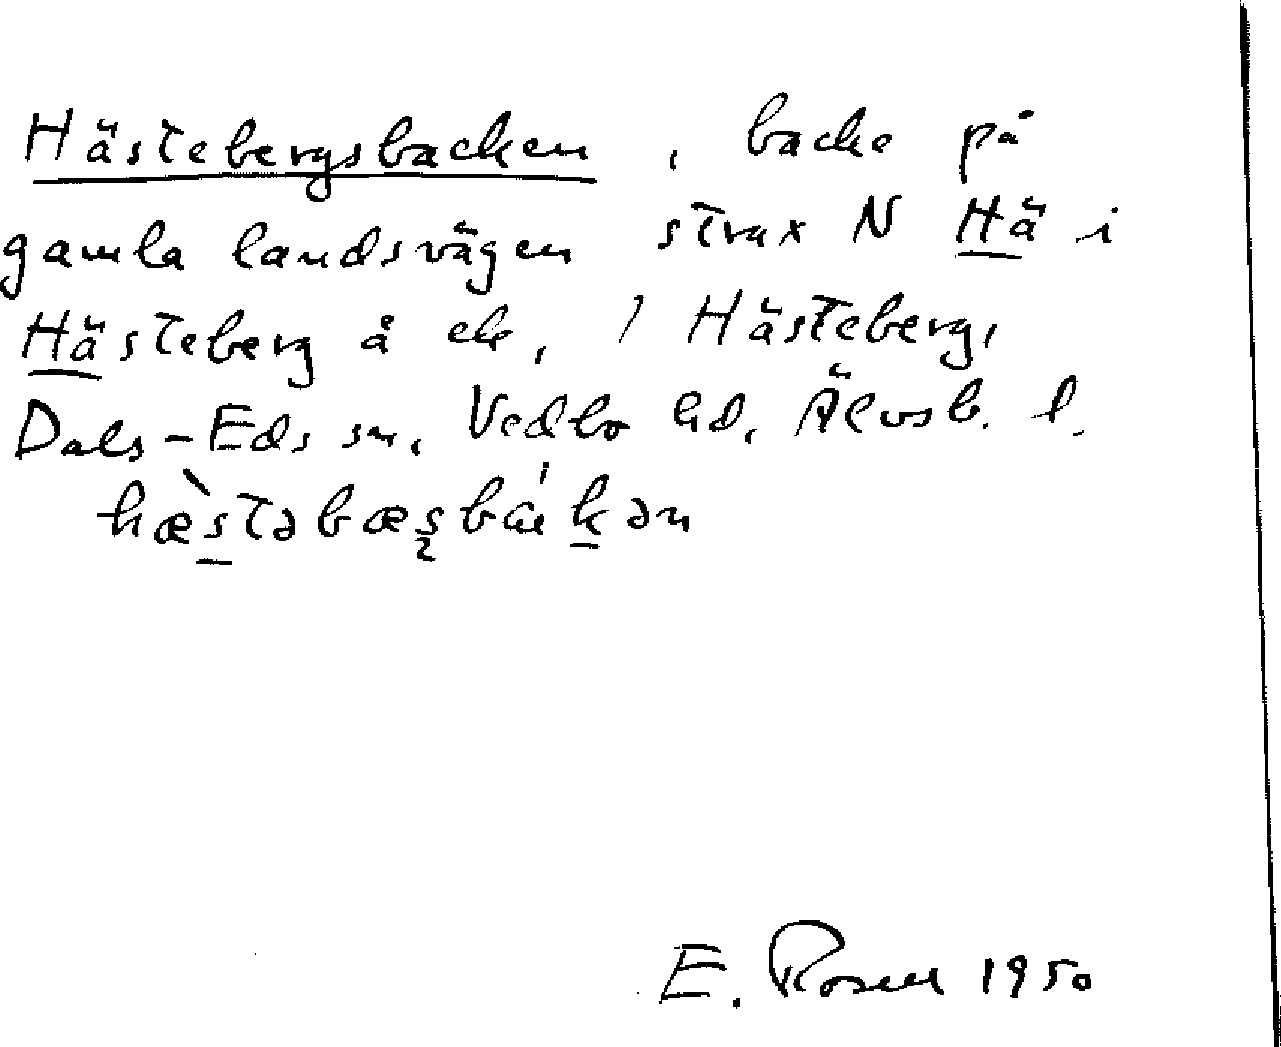 Hästebergsbacken, backe på
gamla landsvägen strax N Hä i
Hästeberg å ek, i Hästeberg,
Dals-Eds sn, Vedbo hd, Älvsb. l.
hæ̀stəbæʂbákən
E. Rosell 1950